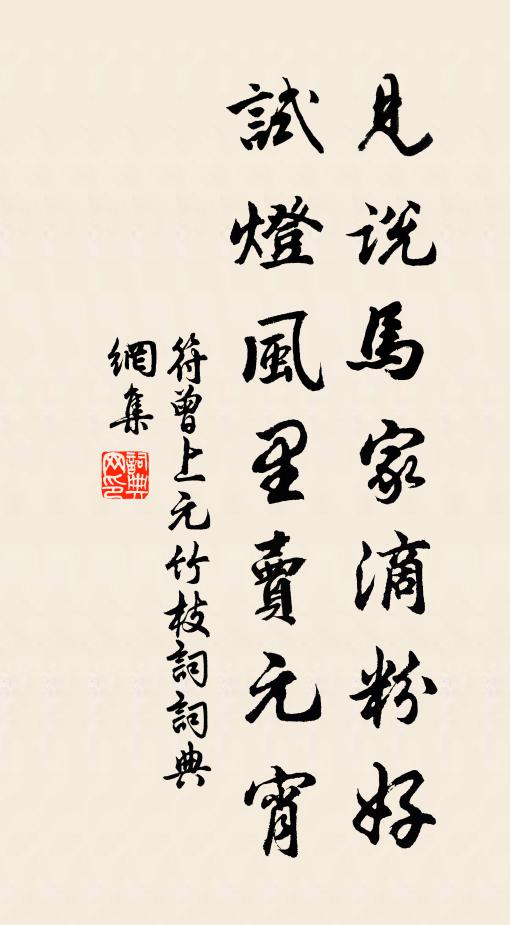 見说馬家滴粉好
試燈風里賣元宵
符曾上元竹枝詞詞典
網集
詞典
网印